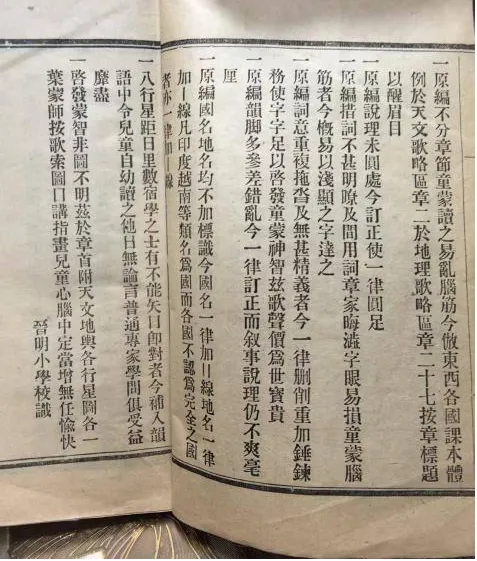 一原編不分章節童蒙讀之易亂腦筋今倣東西各國課本體
例於天文歌略區章二於地理歌略區章二十七按章標題
以醒眉目
一原編說理未圓處今訂正使一律圓足
一原編措詞不甚明暸及間用詞章家晦澁字眼易損童蒙腦
筋者今槪易以淺顯之字達之
一原編詞意重複拖沓及無甚精義者今一律刪削重加錘鍊
務使字字足以啓發童蒙神智兹歌聲價爲世寶貴
一原編韻脚多參差錯亂今一律訂正而叙事說理仍不爽毫
厘
一原編國名地名均不加標識今國名一律加॥線地名一律
加︱線凡印度越南等類名爲國而各國不認爲完全之國
者亦一律加︱線
一八行星距日里數宿學之士有不能矢口卽對者今補入韻
語中令兒童自幼讀之他日無論言普通專家學問俱受益
靡盡
啓發蒙智非圖不明茲於章首附天文地輿各行星圖各一
葉蒙師按歌索圖口講指畫兒童心腦中定當增無任愉快
晉明小學校識